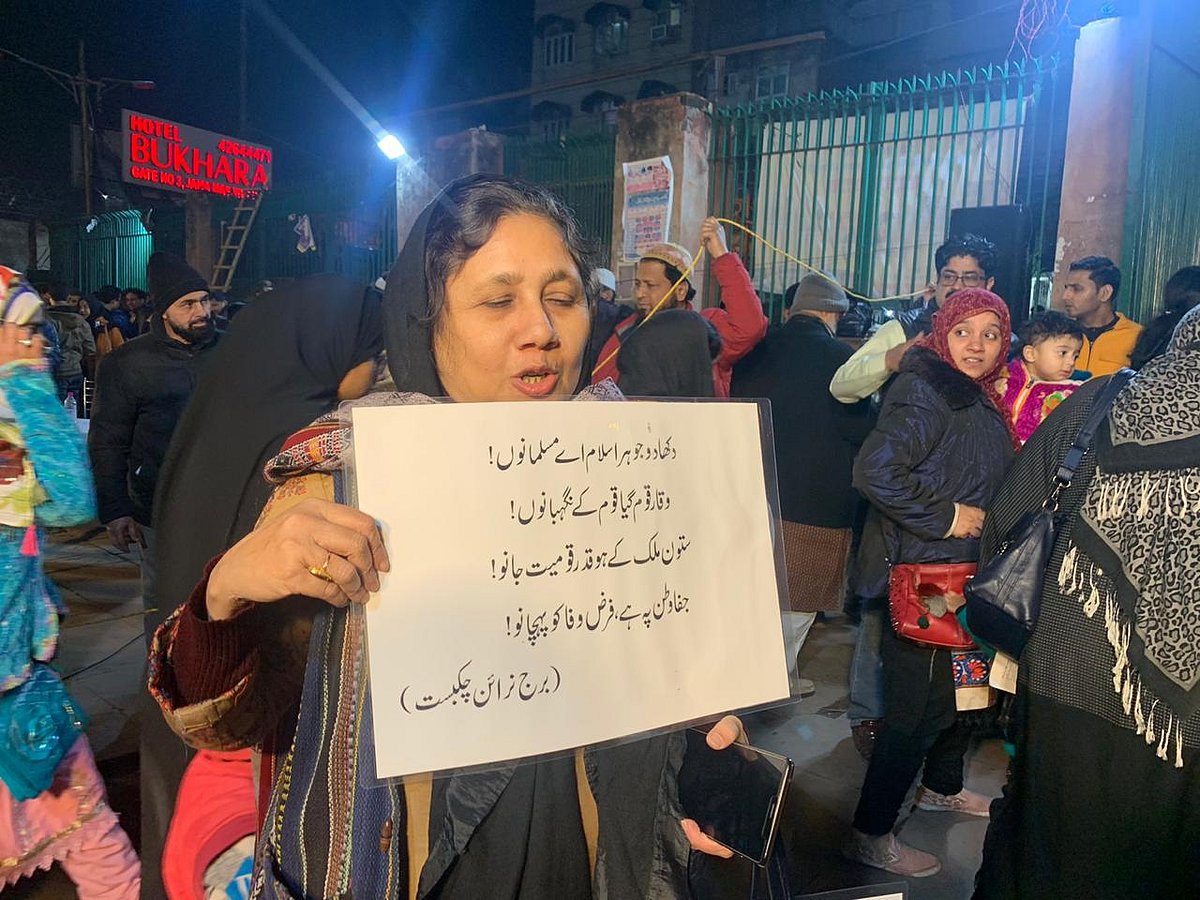 HOTEL
42644471
BUKHARA
GATE NO 3, JAMA
دکھا دو جوہر اسلام اے مسلمانوں!
وقار قوم گیا قوم کے نگہبانوں!
ستون ملک کے ہو قدر قومیت جانو!
جفا وطن پہ ہے، فرض وفا کو پہچانو!
(برج نرائن چکبست)